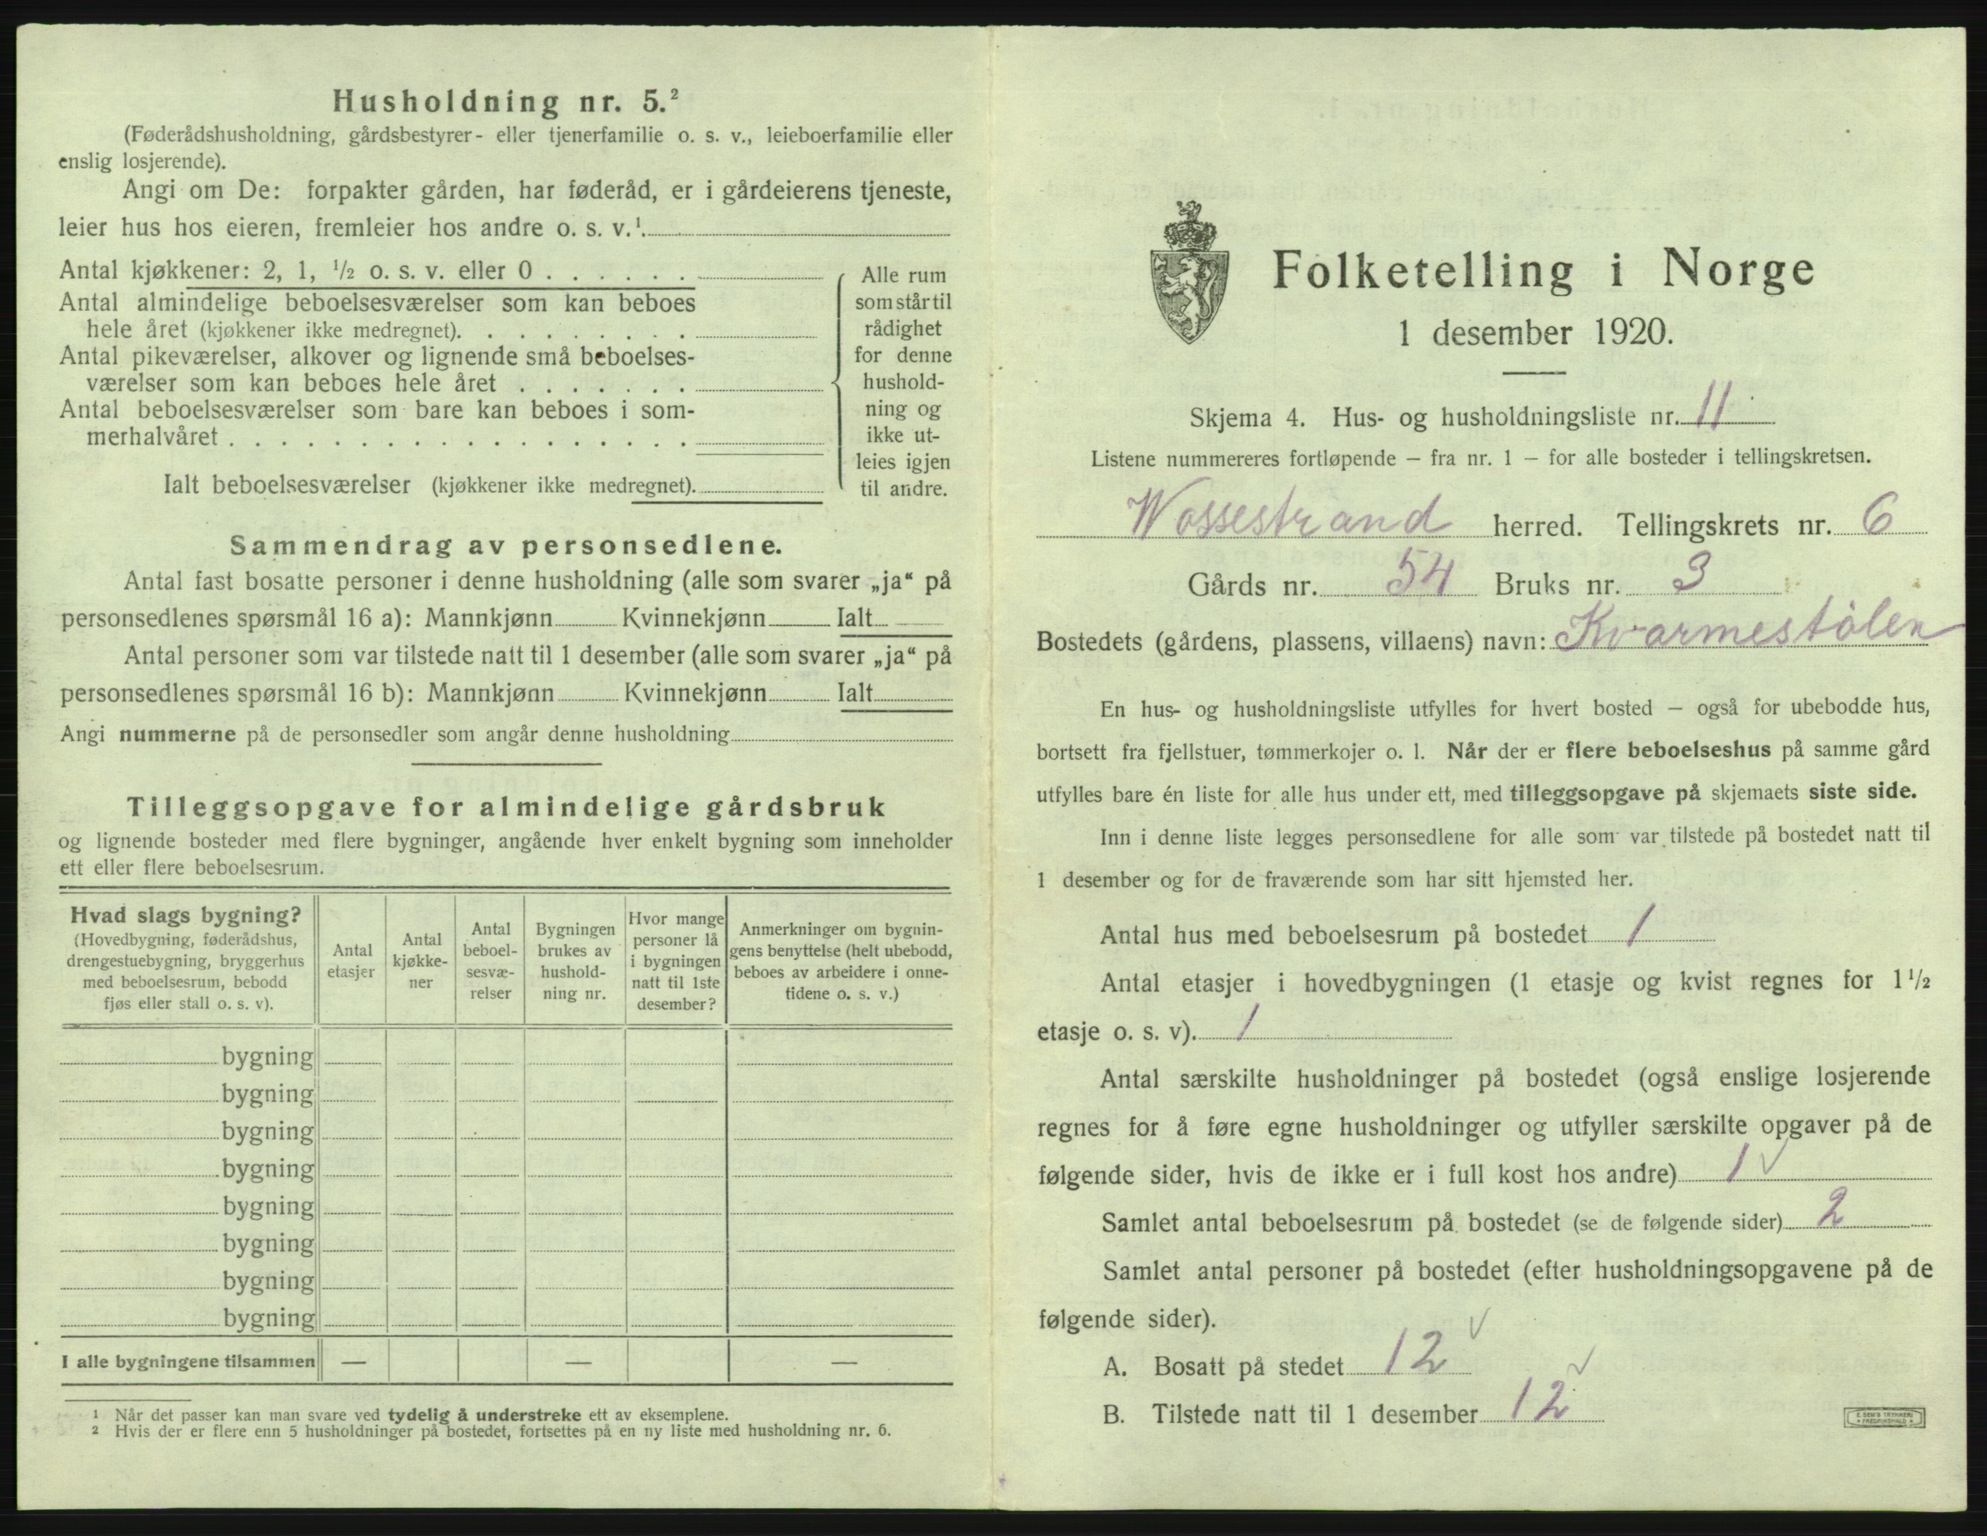 Husholdning nr. 5.²
(Føderådshusholdning, gårdsbestyrer- eller tjenerfamilie o. s. v., leieboerfamilie eller
enslig losjerende).
Angi om De: forpakter gården, har føderåd, er i gårdeierens tjeneste,
leier hus hos eieren, fremleier hos andre o. s. v.¹.
Antal kjøkkener: 2, 1, ½ o. s. v. eller 0 . . . . . .
Antal almindelige beboelsesværelser som kan beboes
hele året (kjøkkener ikke medregnet). . . . . . . . .
Antal pikeværelser, alkover og lignende små beboelses-
værelser som kan beboes hele året . . . . . . .
Antal beboelsesværelser som bare kan beboes i som-
merhalvåret . . . . . . . . . . . . . . . . . .
Ialt beboelsesværelser (kjøkkener ikke medregnet).
Alle rum
som står til
rådighet
for denne
hushold-
ning og
ikke ut-
leies igjen
til andre.
Sammendrag av personsedlene.
Antal fast bosatte personer i denne husholdning (alle som svarer „ja“ på
personsedlenes spørsmål 16 a): Mannkjønn Kvinnekjønn Ialt
Antal personer som var tilstede natt til 1 desember (alle som svarer „ja“ på
personsedlenes spørsmål 16 b): Mannkjønn Kvinnekjønn Ialt
Angi nummerne på de personsedler som angår denne husholdning
Tilleggsopgave for almindelige gårdsbruk
og lignende bosteder med flere bygninger, angående hver enkelt bygning som inneholder
ett eller flere beboelsesrum.
Hvad slags bygning?
(Hovedbygning, føderådshus,
drengestuebygning, bryggerhus
med beboelsesrum, bebodd
fjøs eller stall o. s. v).
Antal
etasjer
Antal
kjøkke-
ner
Antal
beboel-
sesvæ-
relser
Bygningen
brukes av
hushold-
ning nr.
Hvor mange
personer lå
i bygningen
natt til 1ste
desember?
Anmerkninger om bygnin-
gens benyttelse (helt ubebodd,
beboes av arbeidere i onne-
tidene o. s. v.)
bygning
bygning
bygning
bygning
bygning
bygning
bygning
bygning
I alle bygningene tilsammen — — —
¹ Når det passer kan man svare ved tydelig å understreke ett av eksemplene.
² Hvis der er flere enn 5 husholdninger på bostedet, fortsettes på en ny liste med husholdning nr. 6.
Folketelling i Norge
1 desember 1920.
Skjema 4. Hus- og husholdningsliste nr. 11
Listene nummereres fortløpende – fra nr. 1 – for alle bosteder i tellingskretsen.
Wossestrand herred. Tellingskrets nr. 6
Gårds nr. 54 Bruks nr. 3
Bostedets (gårdens, plassens, villaens) navn: Kvarmestølen
En hus- og husholdningsliste utfylles for hvert bosted – også for ubebodde hus,
bortsett fra fjellstuer, tømmerkojer o. l. Når der er flere beboelseshus på samme gård
utfylles bare én liste for alle hus under ett, med tilleggsopgave på skjemaets siste side.
Inn i denne liste legges personsedlene for alle som var tilstede på bostedet natt til
1 desember og for de fraværende som har sitt hjemsted her.
Antal hus med beboelsesrum på bostedet 1
Antal etasjer i hovedbygningen (1 etasje og kvist regnes for 1½
etasje o. s. v). 1
Antal særskilte husholdninger på bostedet (også enslige losjerende
regnes for å føre egne husholdninger og utfyller særskilte opgaver på de
følgende sider, hvis de ikke er i full kost hos andre) 1 ✓
Samlet antal beboelsesrum på bostedet (se de følgende sider) 2
Samlet antal personer på bostedet (efter husholdningsopgavene på de
følgende sider).
A. Bosatt på stedet 12 ✓
B. Tilstede natt til 1 desember 12 ✓